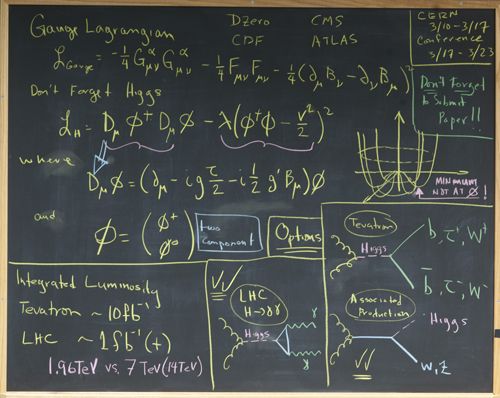 Gauge Lagrangian
DZero CMS
CDF ATLAS
CERN
3/10-3/17
Conference
3/17 - 3/23
ℒ_Gauge = -1/4 G^α_μν G^α_μν - 1/4 F_μν F_μν - 1/4(∂_μ B_ν - ∂_ν B_μ)^2
Don't Forget
to Submit
Paper!!
Don't Forget Higgs
ℒ_H = D_μ ϕ^† D_μ ϕ - λ(ϕ^†ϕ - v^2/2)^2
where
D_μ ϕ = (∂_μ - i g τ/2 - i 1/2 g' B_μ)ϕ
MINIMUM
NOT AT ϕ!
and
ϕ = (ϕ^+ ϕ^0)
two
component
Options
Tevatron
Higgs
b, τ^-, W^+
b̄, τ^-, W^-
Integrated Luminosity
Tevatron ~10fb^-1
LHC ~1fb^-1 (+)
1.96TeV vs. 7TeV (14TeV)
LHC
H→γγ
Higgs
γ
γ
Associated
Production
Higgs
W, Z